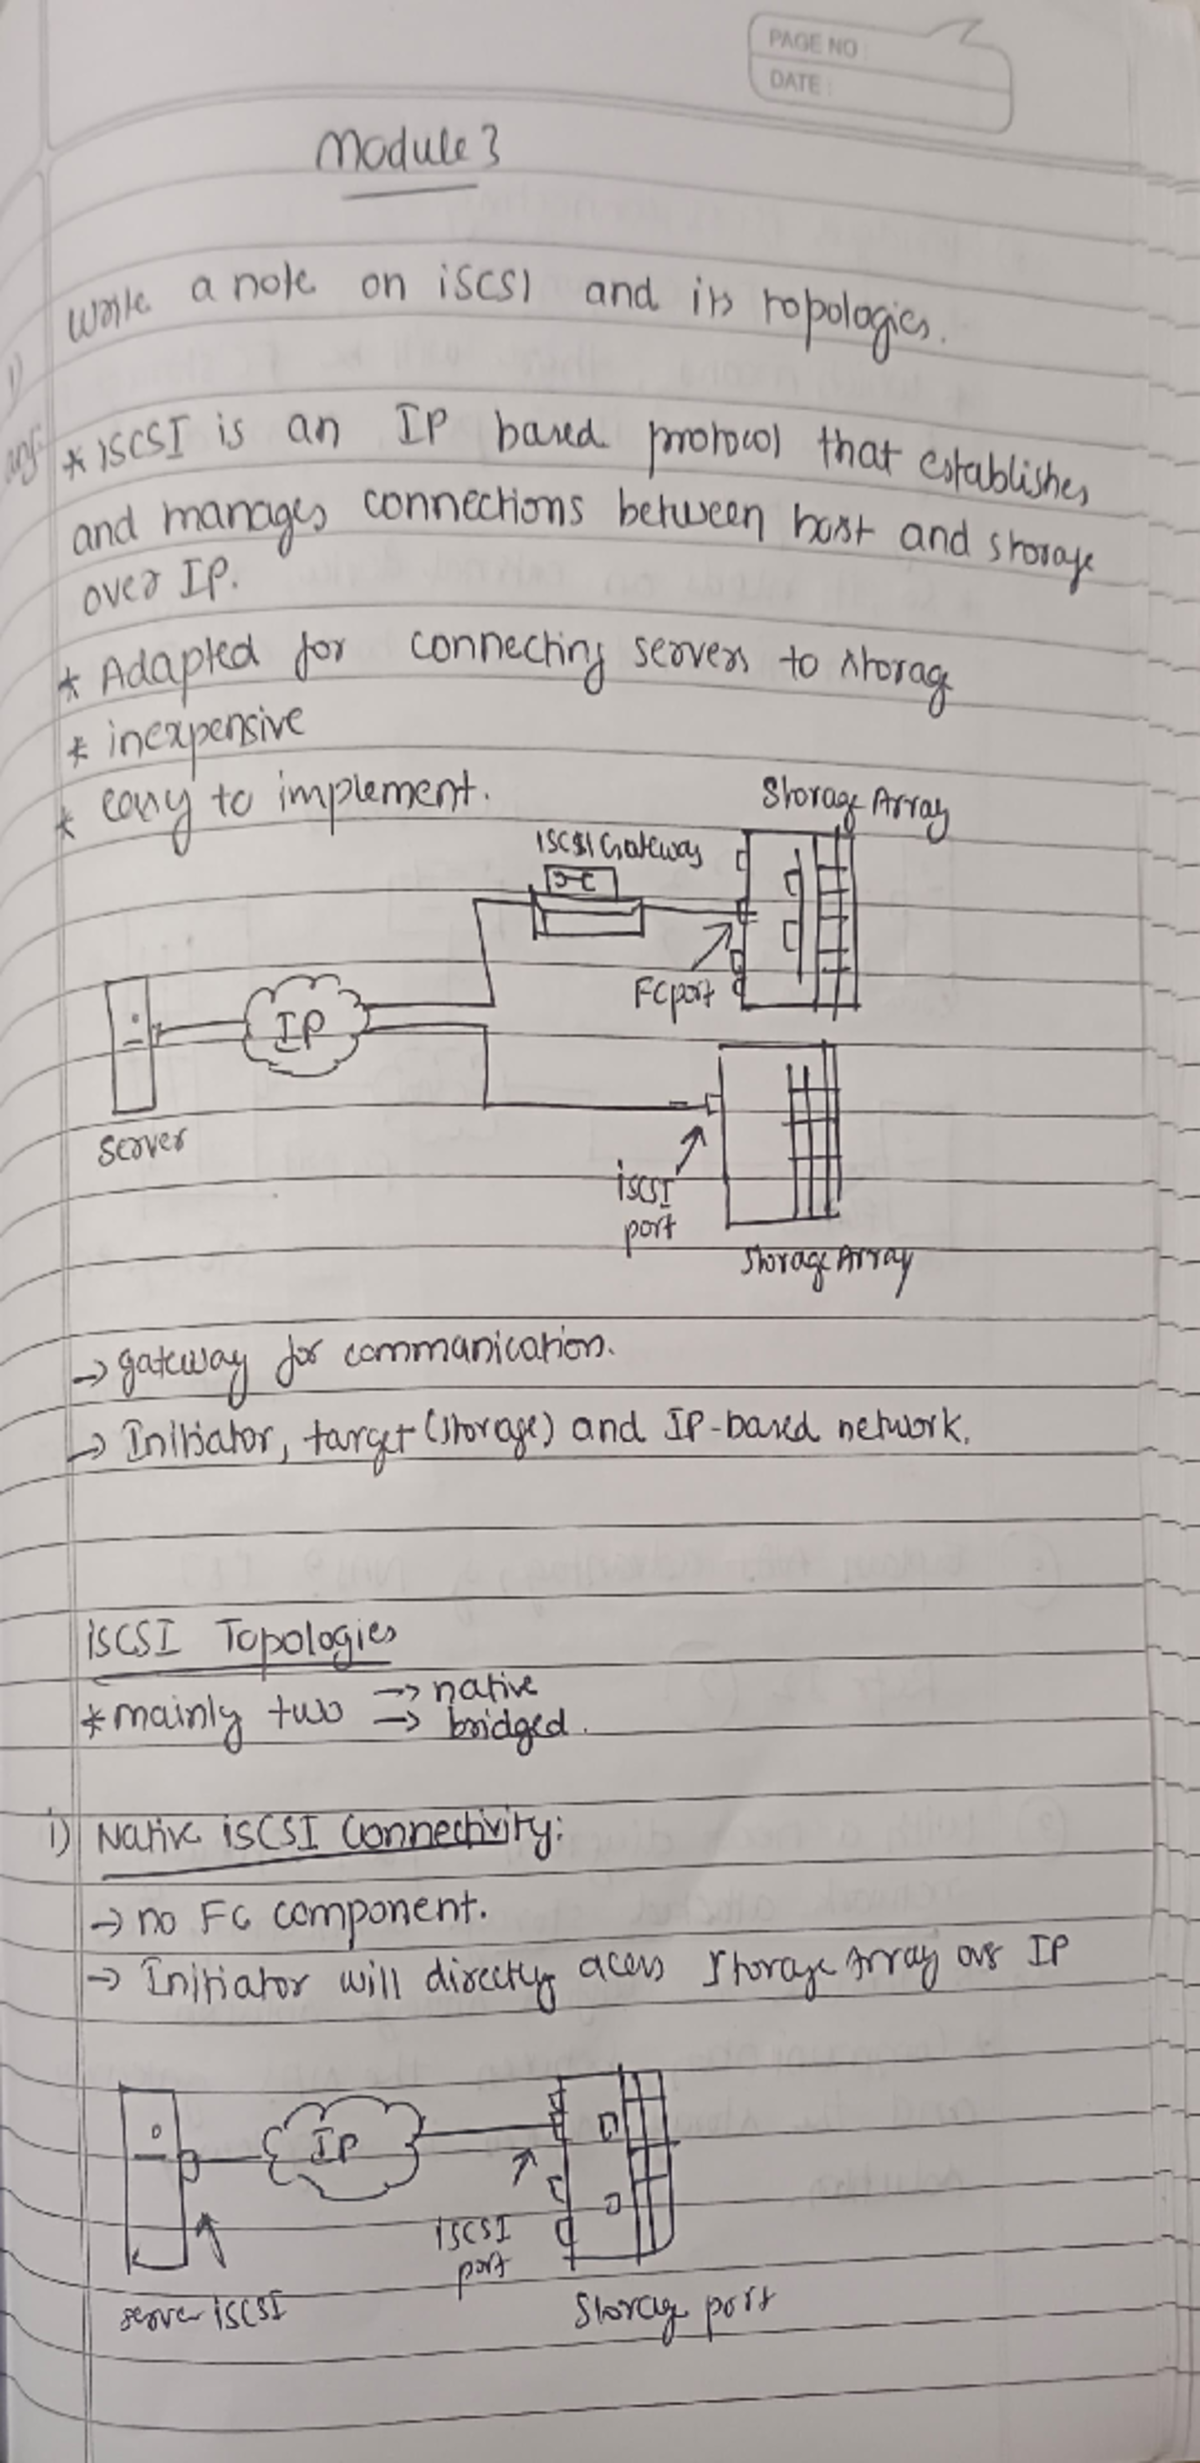 PAGE NO :
DATE :
Module 3
1) Write a note on iSCSI and its topologies.
ans * iSCSI is an IP based protocol that establishes
and manages connections between host and storage
over IP.
* Adapted for connecting servers to storage
* inexpensive
* easy to implement.
Storage Array
iSCSI Gateway
FC port
IP
Server
iSCSI
port
Storage Array
→ gateway for communication.
→ Initiator, target (storage) and IP-based network.
iSCSI Topologies
* mainly two → native
→ bridged.
i) Native iSCSI Connectivity:
→ no FC component.
→ Initiator will directly acess Storage Array ovr IP
IP
iSCSI
port
server iSCSI
Storag port